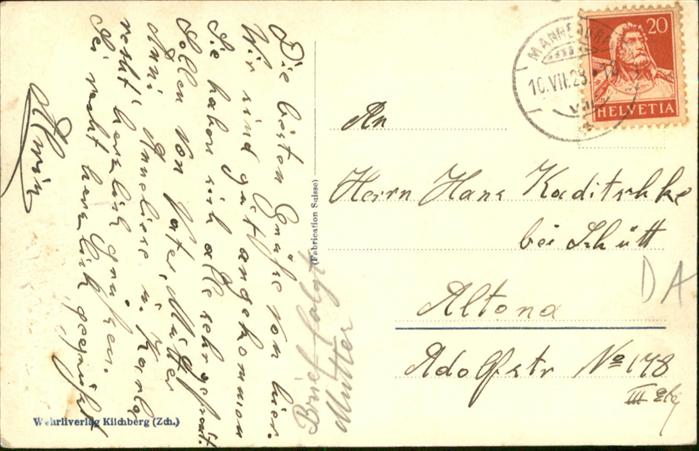 Die besten Grüße von hier.
Wir sind gut angekommen
Sie haben sich alle sehr gefreut.
Sollen von Vater, Mutter
Anni Anneliese u. Karla
recht herzlich grüßen.
Sei recht herzlich gegrüßt
Brief folgt
Mutter
(Fabrication Suisse)
Wehrliverlag Kilchberg (Zch.)
10.VII.23
20
HELVETIA
An
Herrn Hans Kaditschke
bei Schütt
Altona
Adolfstr No 178
III Etg
DA